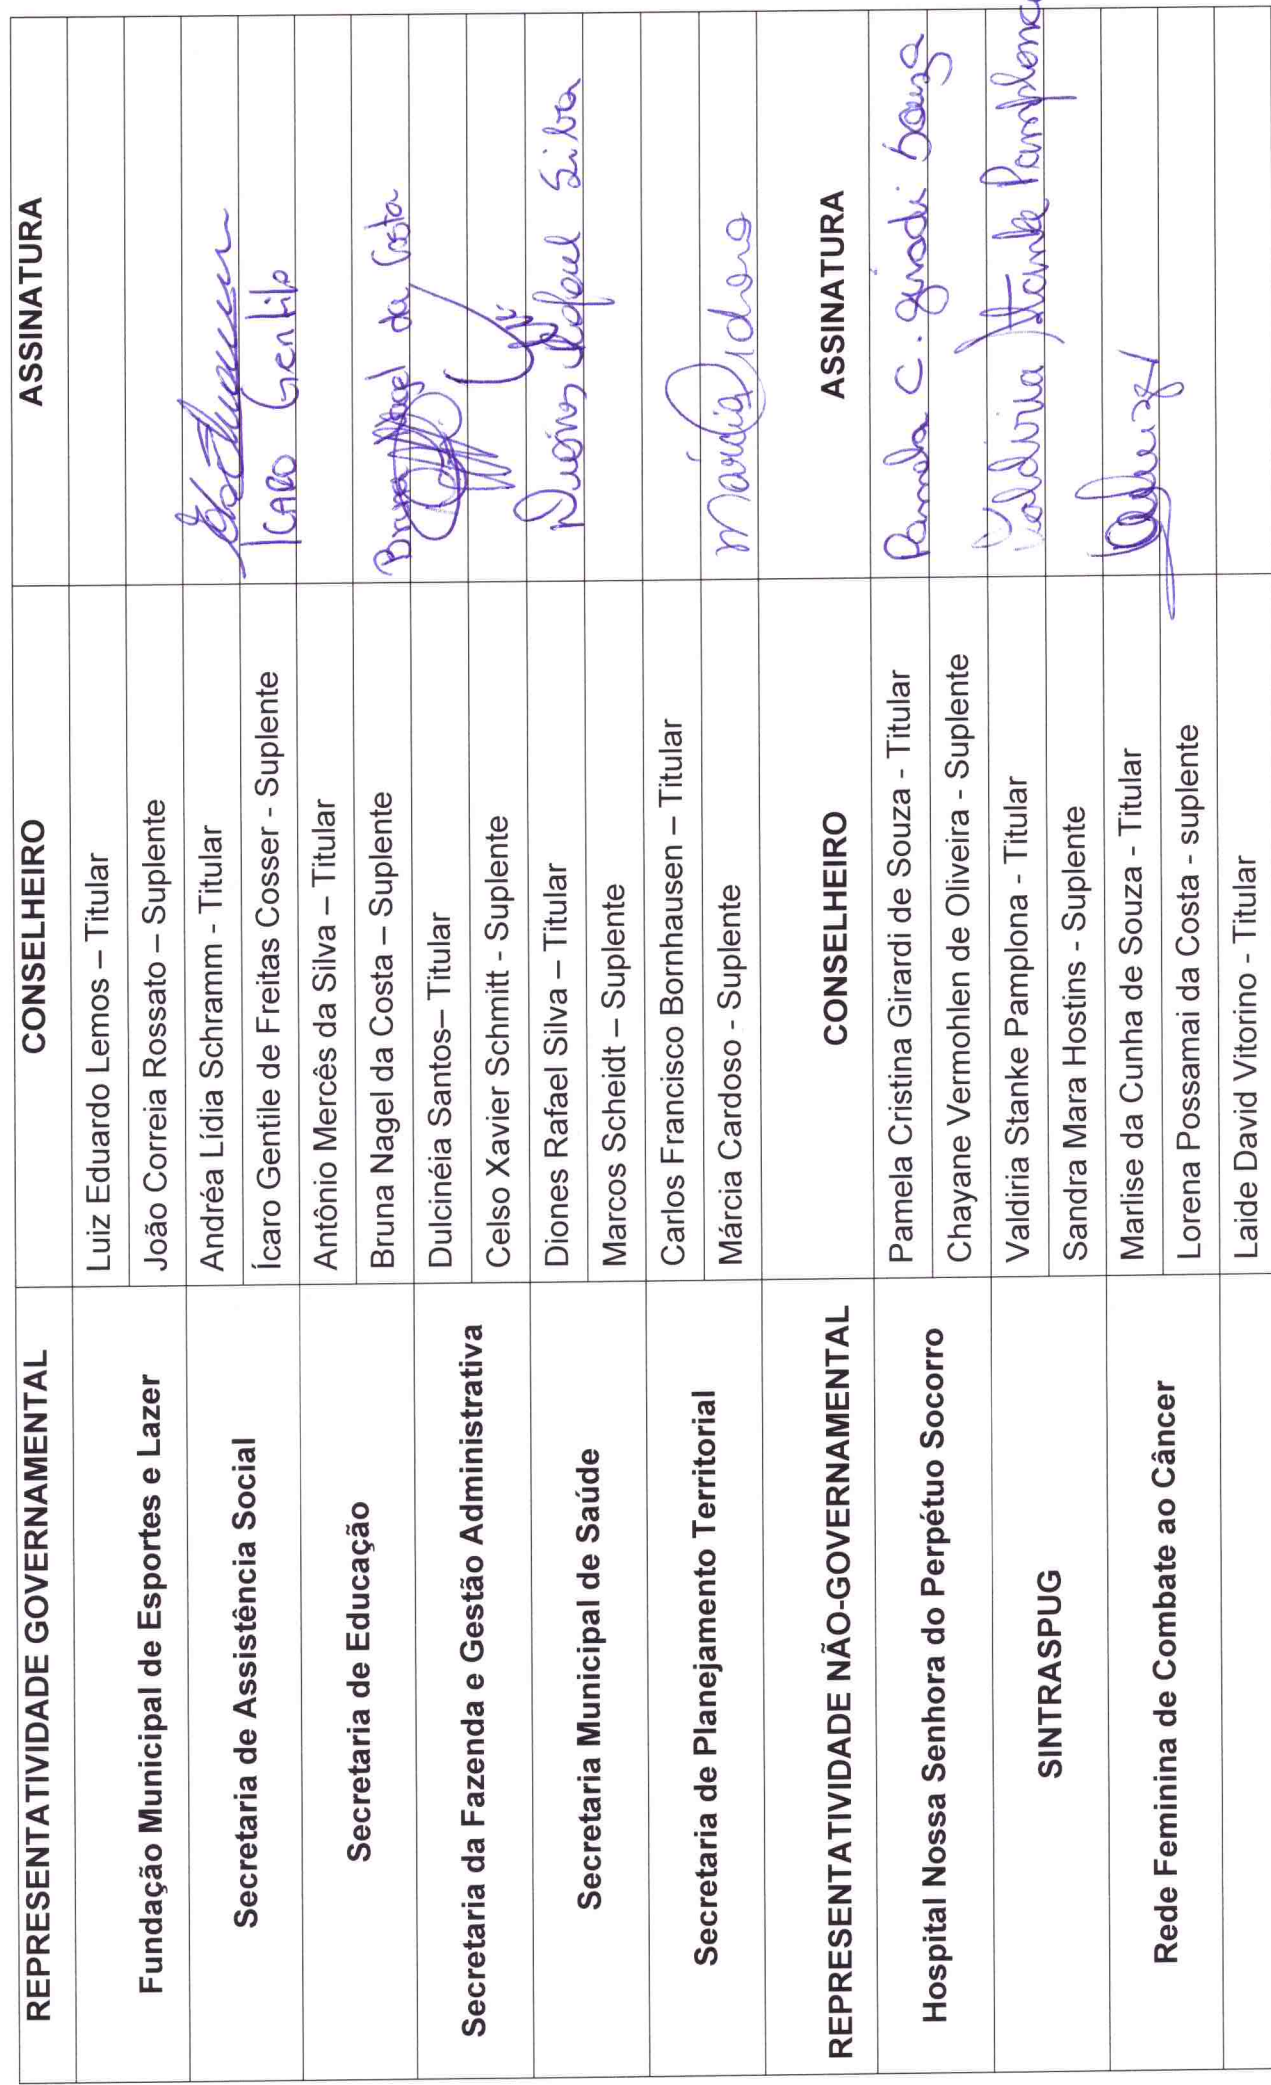 REPRESENTATIVIDADE GOVERNAMENTAL CONSELHEIRO ASSINATURA
Fundação Municipal de Esportes e Lazer
Luiz Eduardo Lemos – Titular
João Correia Rossato – Suplente
Secretaria de Assistência Social
Andréa Lídia Schramm - Titular
Ícaro Gentile de Freitas Cosser - Suplente ICARO Gentile
Secretaria de Educação
Antônio Mercês da Silva – Titular
Bruna Nagel da Costa – Suplente Bruna Nagel da Costa
Secretaria da Fazenda e Gestão Administrativa
Dulcinéia Santos– Titular
Celso Xavier Schmitt - Suplente
Secretaria Municipal de Saúde
Diones Rafael Silva – Titular Diones Rafael Silva
Marcos Scheidt – Suplente
Secretaria de Planejamento Territorial
Carlos Francisco Bornhausen – Titular
Márcia Cardoso - Suplente Márcia
REPRESENTATIVIDADE NÃO-GOVERNAMENTAL CONSELHEIRO ASSINATURA
Hospital Nossa Senhora do Perpétuo Socorro
Pamela Cristina Girardi de Souza - Titular Pamela C. Girardi Souza
Chayane Vermohlen de Oliveira - Suplente
SINTRASPUG
Valdiria Stanke Pamplona - Titular Valdiria Stanke Pamplona
Sandra Mara Hostins - Suplente
Rede Feminina de Combate ao Câncer
Marlise da Cunha de Souza - Titular
Lorena Possamai da Costa - suplente
Laide David Vitorino - Titular